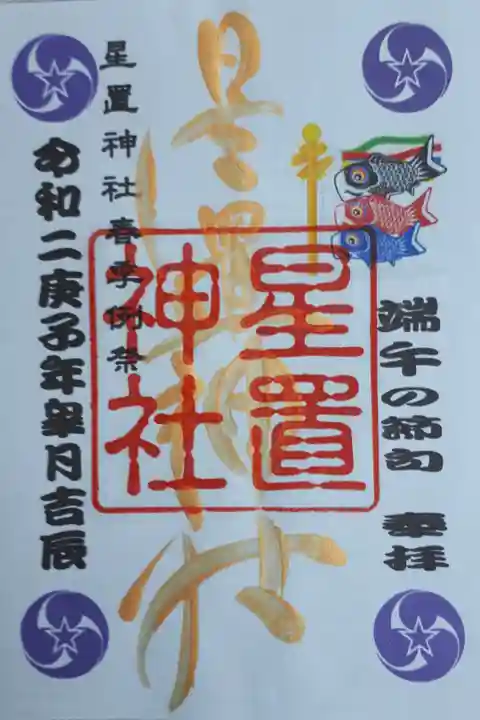 端午の節句 奉拝
星置神社
星置
神社
星置神社春季例祭
令和二庚子年皐月吉辰